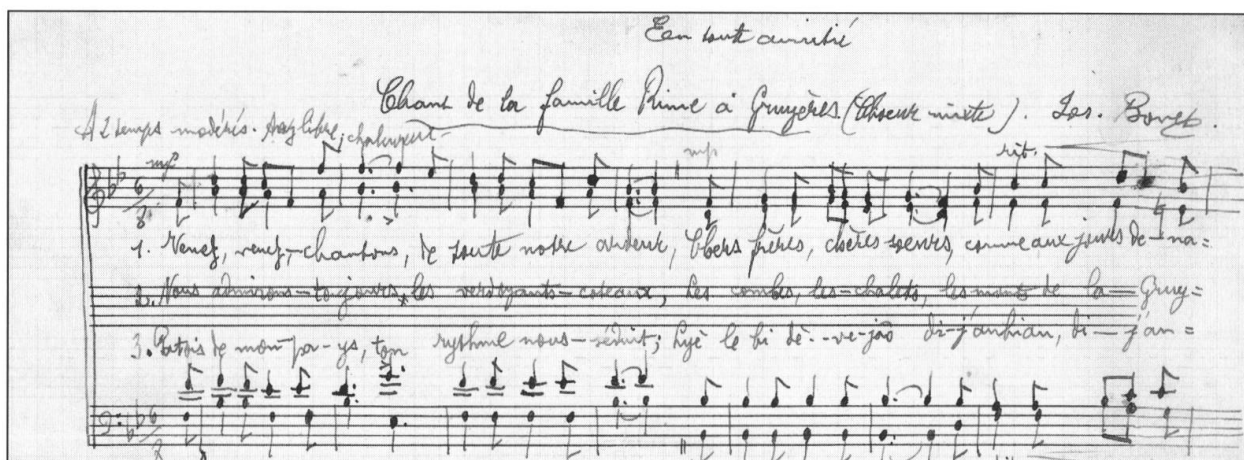 En toute amitié
Chant de la famille Rime à Gruyères (Choeur mixte). Jos. Bovet.
A 2 temps modérés. Assez libre, chaleureux
mp mp rit.
6
8
1. Venez, venez, chantons, de toute notre ardeur, Chers frères, chères soeurs, comme aux jours de na=
2. Nous admirons toujours, les verdoyants coteaux, Les combes, les chalets, les monts de la Gruy=
3. Patois de mon pa-ys, ton rythme nous séduit; di-j'anhian, di-j'an=
6
8